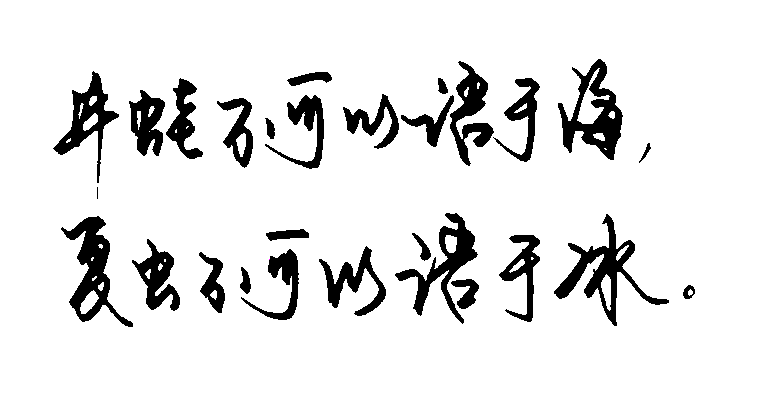 井蛙不可以语于海，
夏虫不可以语于冰。